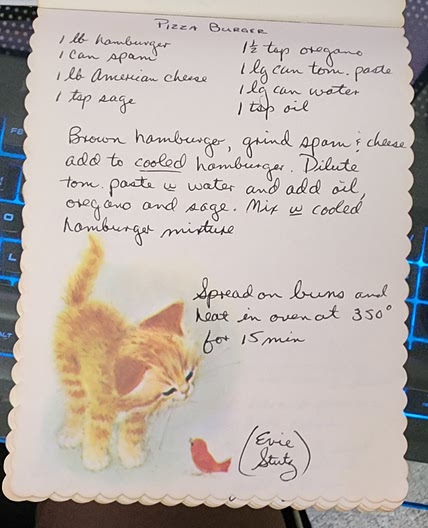 PIZZA BURGER
1 lb hamburger
1 can spam
1 lb American cheese
1 tsp sage
1½ tsp oregano
1 lg can tom. paste
1 lg can water
1 tsp oil
Brown hamburger, grind spam & cheese
add to cooled hamburger. Dilute
tom. paste w water and add oil,
oregano and sage. Mix w cooled
hamburger mixture
Spread on buns and
heat in oven at 350°
for 15 min
(Evie
Stutz)